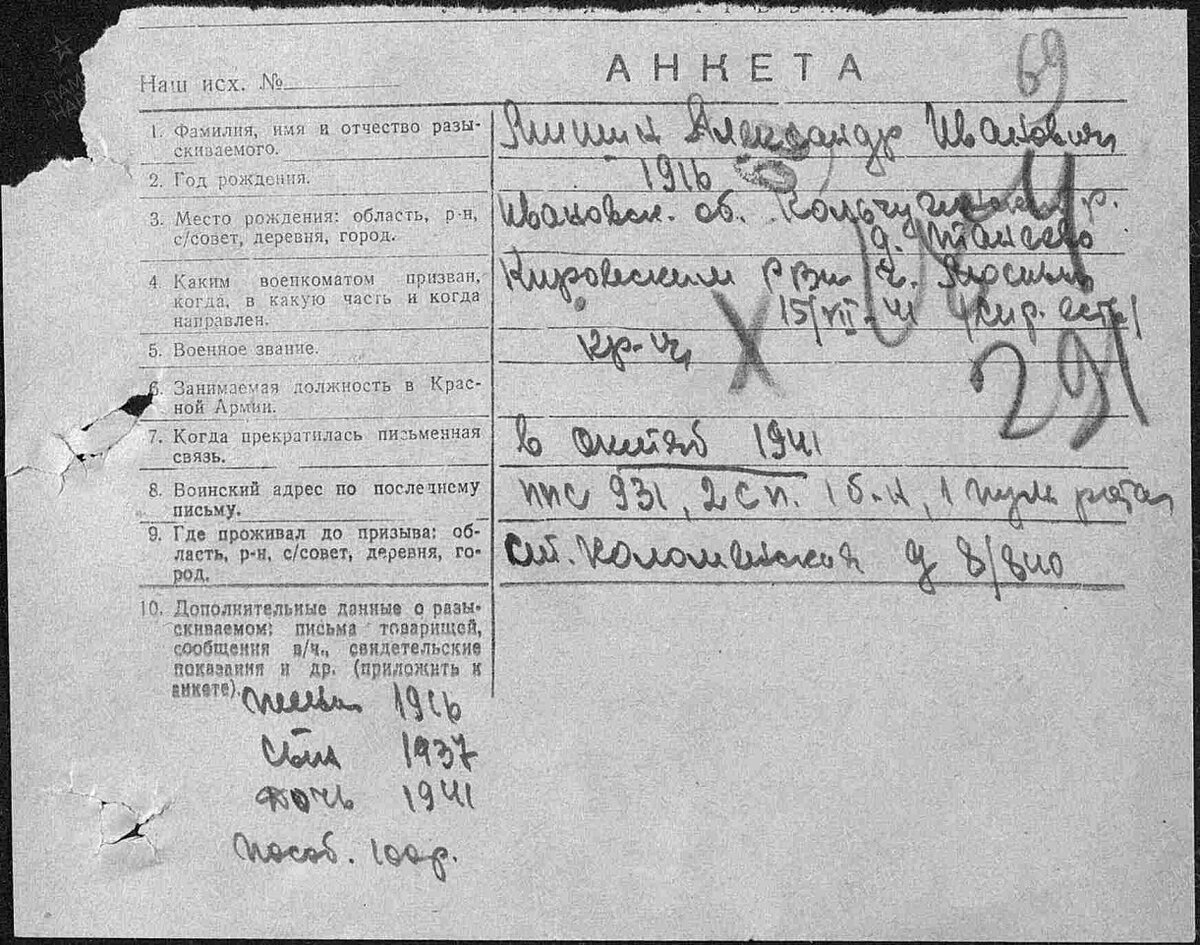 69
АНКЕТА
Наш исх. №
1. Фамилия, имя и отчество разы-
скиваемого.
Александр Иванович
2. Год рождения.
1916
3. Место рождения: область, р-н,
с/совет, деревня, город.
Ивановск. об. Кольчугинский р.
д.
4 Каким военкоматом призван,
когда, в какую часть и когда
направлен.
Кировским РВК г.
15/VII-41
5. Военное звание.
кр-ц
291
6. Занимаемая должность в Крас-
ной Армии.
7. Когда прекратилась письменная
связь.
в октяб 1941
8. Воинский адрес по последнему
письму.
ППС 931, 2 сп. 1 б-н, 1 пуль рота
9. Где проживал до призыва: об-
ласть, р-н, с/совет, деревня, го-
род.
Коломенская д 8/
10. Дополнительные данные о разы-
скиваемом: письма товарищей,
сообщения в/ч., свидетельские
показания и др. (приложить к
анкете).
жена 1916
сын 1937
дочь 1941
Пособ. 100р.